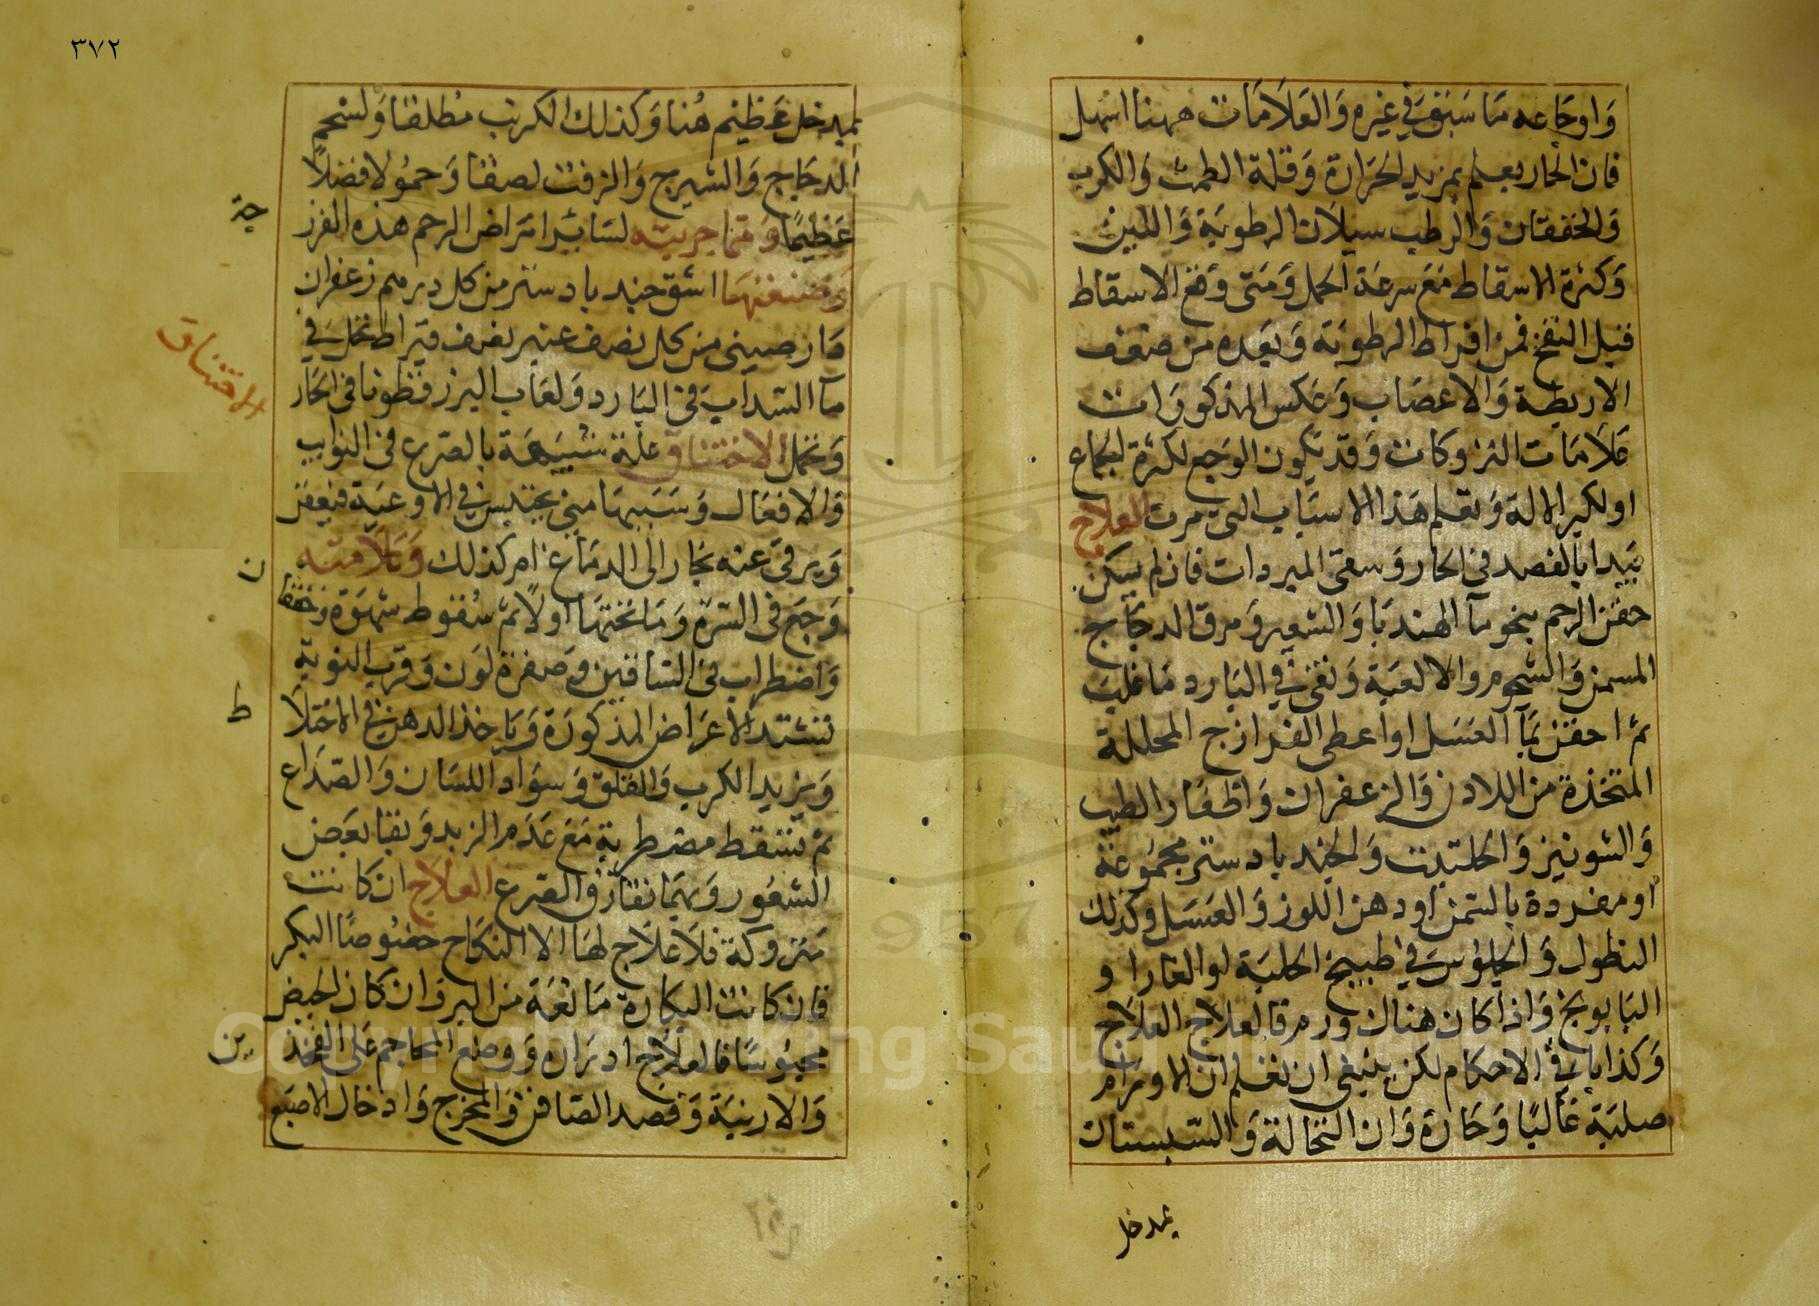 واوجاعه ما سبق في غيره والعلامات ههنا اسهل
فان الحار يعلم بمزيد الحرارة وقلة الطمث والكرب
والخفقان والرطب سيلان الرطوبة واللين
وكثرة الاسقاط مع سرعة الحمل ومتى وقع الاسقاط
قبل النفخ فمن افراط الرطوبة وبعده من ضعف
الاربطة والاعصاب وعكس المذكورات
علامات النزو كانت وقد تكون الوجع لكثرة الجماع
او لكبر الالة وتعلم هذا الاسباب التي مرت العلاج
يبدا بالفصد في الحار وسقى المبردات فان لم يسكن
حقن الرحم بنحو ماء الهندبا والشعير ومرق الدجاج
المسمن والشحوم والالعبة ونقى في البارد ما غلب
ثم احقن بماء العسل او اعطى الفرازج المحللة
المتخذة من اللادن والزعفران واظفار الطيب
والشونيز والحلتيت والجند بادستر مجموعة
او مفردة بالسمن او دهن اللوز والعسل وكذلك
النطول والجلوس في طبيخ الحلبة او الغار او
البابونج واذا كان هناك ورم فالعلاج العلاج
وكذا باقي الاحكام لكن ينبغي ان تعلم ان الاورام
صلبة غالبا وحارة وان النخالة والسبستان
بمدخل
٣٧٢
بمدخل عظيم هنا وكذلك الكرنب مطلقا ولشحم
الدجاج والشيرج والزفت لصقا وحمولا فضلا
عظيما ومما جربته لسائر امراض الرحم هذه الفرز
وصنعتها اشق جند بادستر من كل درهم زعفران
دار صيني من كل نصف عنبر نصف قيراط تحل في
ماء السداب في البارد ولعاب البزر قطونا في الحار
وتحمل الاختناق علة شبيهة بالصرع في النوايب
والافعال وسببها مني يحتبس في الاوعية فيعفن
ويرقى عنه بخار الى الدماغ او دم كذلك وعلامته
وجع في السرة وما تحتها اولا ثم سقوط شهوة وخفقا
ن
واضطراب في الساقين وصفرة لون وقرب النوبة
تشتد الاعراض المذكورة وياخذ الدهن في الاختلا
ط
ويزيد الكرب والقلق وسواد اللسان والصداع
ثم تسقط مضطربة مع عدم الزبد وبقا بعض
الشعور وبهما تفارق الصرع العلاج ان كانت
متروكة فلا علاج لها الا النكاح خصوصا البكر
فان كانت البكارة مانعة من البرؤ وان كان الحيض
محبوسا فالعلاج ادراره ووضع المحاجم على الفخذ
ين
والاربية وفصد الصافن والمخرج وادخال الاصبع
جة
الاختناق